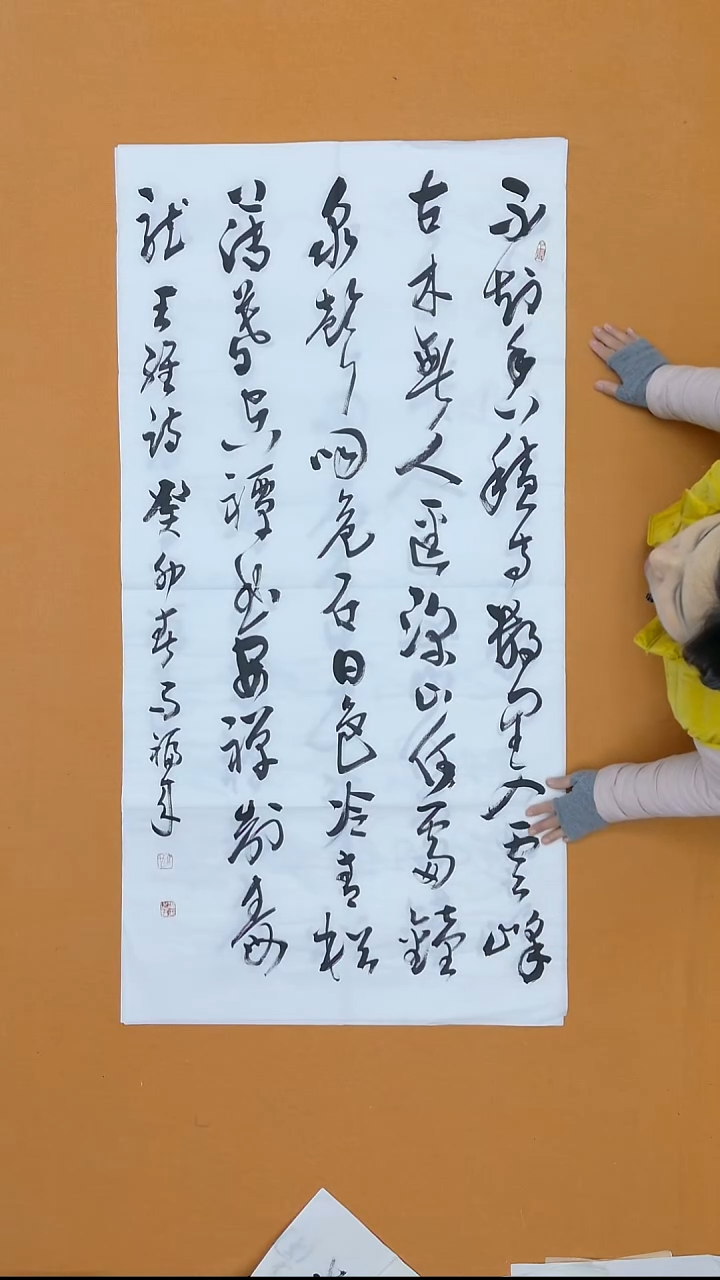 不知香積寺數里入雲峰
古木無人徑深山何處鐘
泉聲咽危石日色冷青松
薄暮空潭曲安禪制毒
龍 王維詩 癸卯春馬福